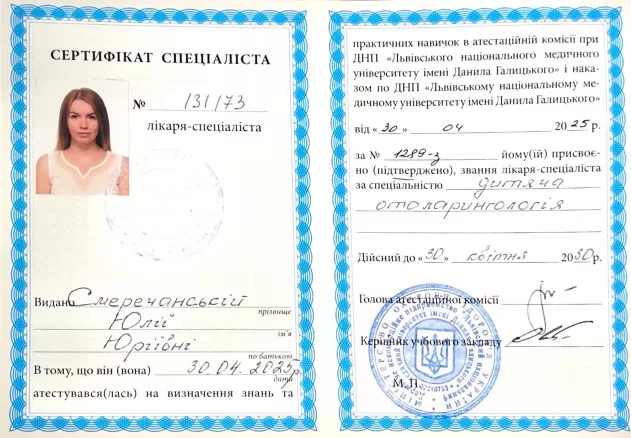 СЕРТИФІКАТ СПЕЦІАЛІСТА
№ 131/73
лікаря-спеціаліста
Видано Смеречанській
прізвище
Юлії
ім'я
Юріївні
по батькові
В тому, що він (вона) 30.04.2025р.
дата
атестувався(лась) на визначення знань та
практичних навичок в атестаційній комісії при
ДНП «Львівського національного медичного
університету імені Данила Галицького» і нака-
зом по ДНП «Львівському національному ме-
дичному університету імені Данила Галицького»
від «30» 04 2025 р.
за № 1289-з йому(їй) присвоє-
но (підтверджено), звання лікаря-спеціаліста
за спеціальністю дитяча
отоларингологія
Дійсний до «30» квітня 2030р.
Голова атестаційної комісії
Керівник учбового закладу
М. П.